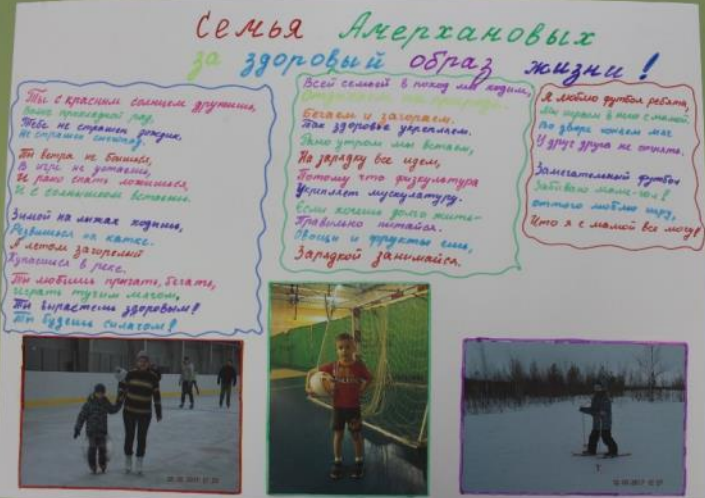 Семья Амерхановых
за здоровый образ жизни!
Ты с красным солнцем дружишь,
прохладой рад,
Тебе не страшен дождик,
Не страшен снегопад.
Ты ветра не боишься,
В игре не устаешь,
И рано спать ложишься,
И с солнышком встаешь.
Зимой на лыжах ходишь,
Резвишься на катке.
А летом загорелый
Купаешься в реке.
Ты любишь прыгать, бегать,
Играть тугим мячом,
Ты вырастешь здоровым!
Ты будешь силачом!
Всей семьей в поход мы ходим,
Отдыхаем на природе.
Бегаем и загораем.
Так здоровье укрепляем.
Рано утром мы встаем,
На зарядку все идем,
Потому что физкультура
Укрепляет мускулатуру.
Если хочешь долго жить-
Правильно питайся.
Овощи и фрукты ешь,
Зарядкой занимайся.
Я люблю футбол ребята,
Мы играем в него с мамой
Во дворе гоняем мяч
У друг друга не отнять.
Замечательный футбол
Забиваю маме гол!
оттого люблю игру,
Что я с мамой все могу!
12 27